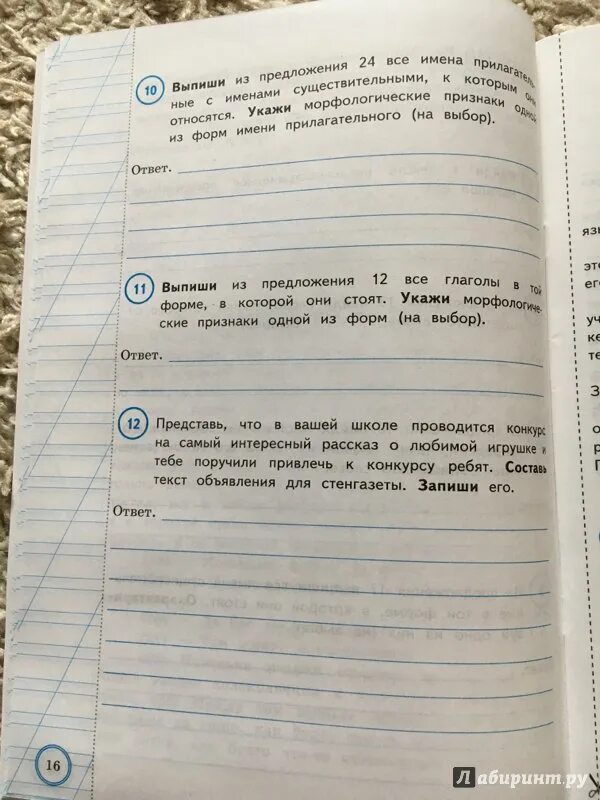 10 Выпиши из предложения 24 все имена прилагатель-
ные с именами существительными, к которым они
относятся. Укажи морфологические признаки одной
из форм имени прилагательного (на выбор).
Ответ.
11 Выпиши из предложения 12 все глаголы в той
форме, в которой они стоят. Укажи морфологиче-
ские признаки одной из форм (на выбор).
Ответ.
12 Представь, что в вашей школе проводится конкурс
на самый интересный рассказ о любимой игрушке и
тебе поручили привлечь к конкурсу ребят. Составь
текст объявления для стенгазеты. Запиши его.
Ответ.
16
яз
это
его
уч
ке
те
З
о
р
Лабиринт.ру